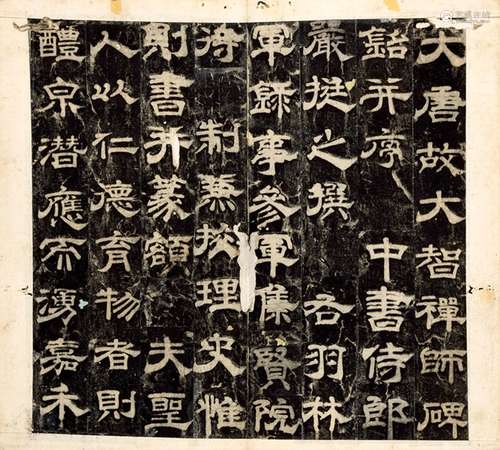 大唐故大智禪師碑
銘并序 中書侍郎
嚴挺之撰 右羽林
軍錄事參軍集賢院
待 制兼挍理史惟
則書并篆額 夫聖
人以仁德育物者則
醴泉潛應而湧嘉禾